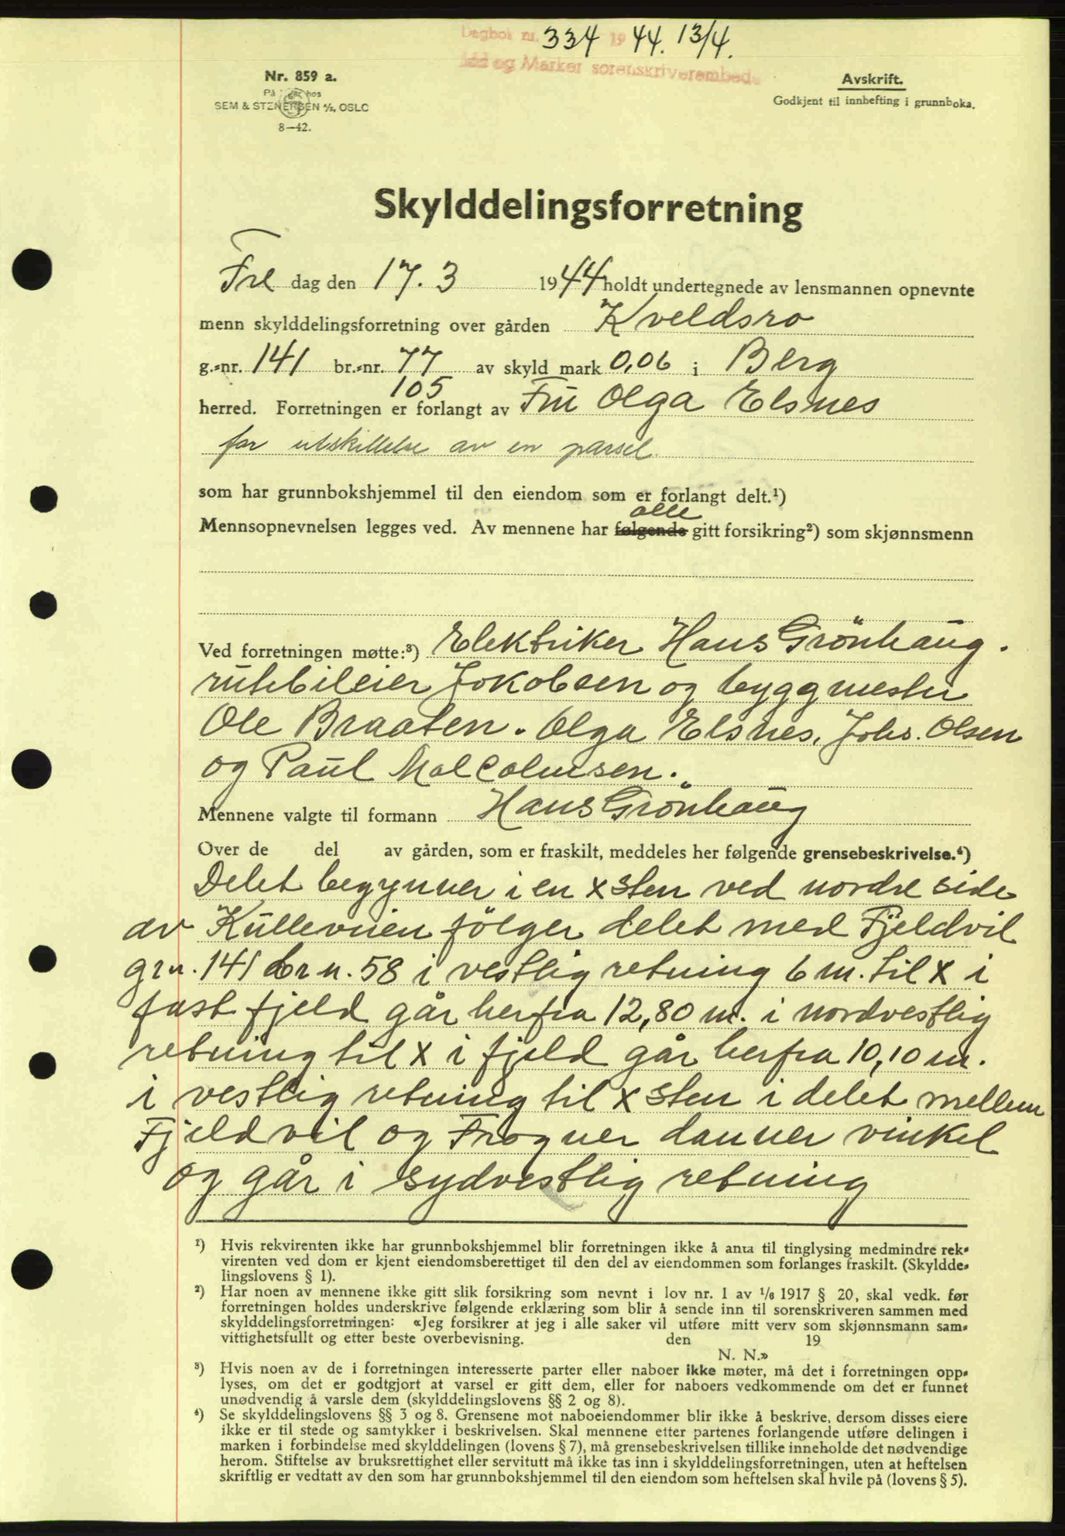 Dagbok nr. 334 1944. 13/4.
Idd og Marker sorenskriverembede
Nr. 859 a.
På lager hos
SEM & STENERSEN A/S, OSLO
8—42.
Avskrift.
Godkjent til innhefting i grunnboka.
Skylddelingsforretning
Fre dag den 17. 3 1944 holdt undertegnede av lensmannen opnevnte
menn skylddelingsforretning over gården Kveldsro
g.-nr. 141 br.-nr. 77 av skyld mark 0,06 i Berg
105
herred. Forretningen er forlangt av Fru Olga Elsnes
for utskillelse av en parsel.
som har grunnbokshjemmel til den eiendom som er forlangt delt.¹)
alle
Mennsopnevnelsen legges ved. Av mennene har følgende gitt forsikring²) som skjønnsmenn
Ved forretningen møtte:³) Elektriker Hans Grönhaug.
rutebileier Jokobsen og byggmester
Ole Braaten. Olga Elsnes, Johs. Olsen
og Paul Malcolmsen.
Mennene valgte til formann Hans Grönhaug
Over de del av gården, som er fraskilt, meddeles her følgende grensebeskrivelse.⁴)
Delet begynner i en x sten ved nordre side
av Kulleveien fölger delet med Fjeldvil
grn. 141 brn. 58 i vestlig retning 6 m. til x i
fast fjeld går herfra 12,80 m. i nordvestlig
retning til x i fjeld går herfra 10,10 m.
i vestlig retning til x sten i delet mellem
Fjeldvil og Frogner danner vinkel
og går i sydvestlig retning
¹) Hvis rekvirenten ikke har grunnbokshjemmel blir forretningen ikke å anta til tinglysing medmindre rek-
virenten ved dom er kjent eiendomsberettiget til den del av eiendommen som forlanges fraskilt. (Skyldde-
lingslovens § 1).
²) Har noen av mennene ikke gitt slik forsikring som nevnt i lov nr. 1 av 1/6 1917 § 20, skal vedk. før
forretningen holdes underskrive følgende erklæring som blir å sende inn til sorenskriveren sammen med
skylddelingsforretningen: «Jeg forsikrer at jeg i alle saker vil utføre mitt verv som skjønnsmann sam-
vittighetsfullt og etter beste overbevisning. den 19
N. N.»
³) Hvis noen av de i forretningen interesserte parter eller naboer ikke møter, må det i forretningen opp-
lyses, om det er godtgjort at varsel er gitt dem, eller for naboers vedkommende om det er funnet
unødvendig å varsle dem (skylddelingslovens §§ 2 og 8).
⁴) Se skylddelingslovens §§ 3 og 8. Grensene mot naboeiendommer blir ikke å beskrive, dersom disses eiere
ikke er til stede og samtykker i beskrivelsen. Skal mennene etter partenes forlangende utføre delingen i
marken i forbindelse med skylddelingen (lovens § 7), må grensebeskrivelsen tillike inneholde det nødvendige
herom. Stiftelse av bruksrettighet eller servitutt må ikke tas inn i skylddelingsforretningen, uten at heftelsen
skriftlig er vedtatt av den som har grunnbokshjemmel til den eiendom som heftelsen skal hvile på (lovens § 5).